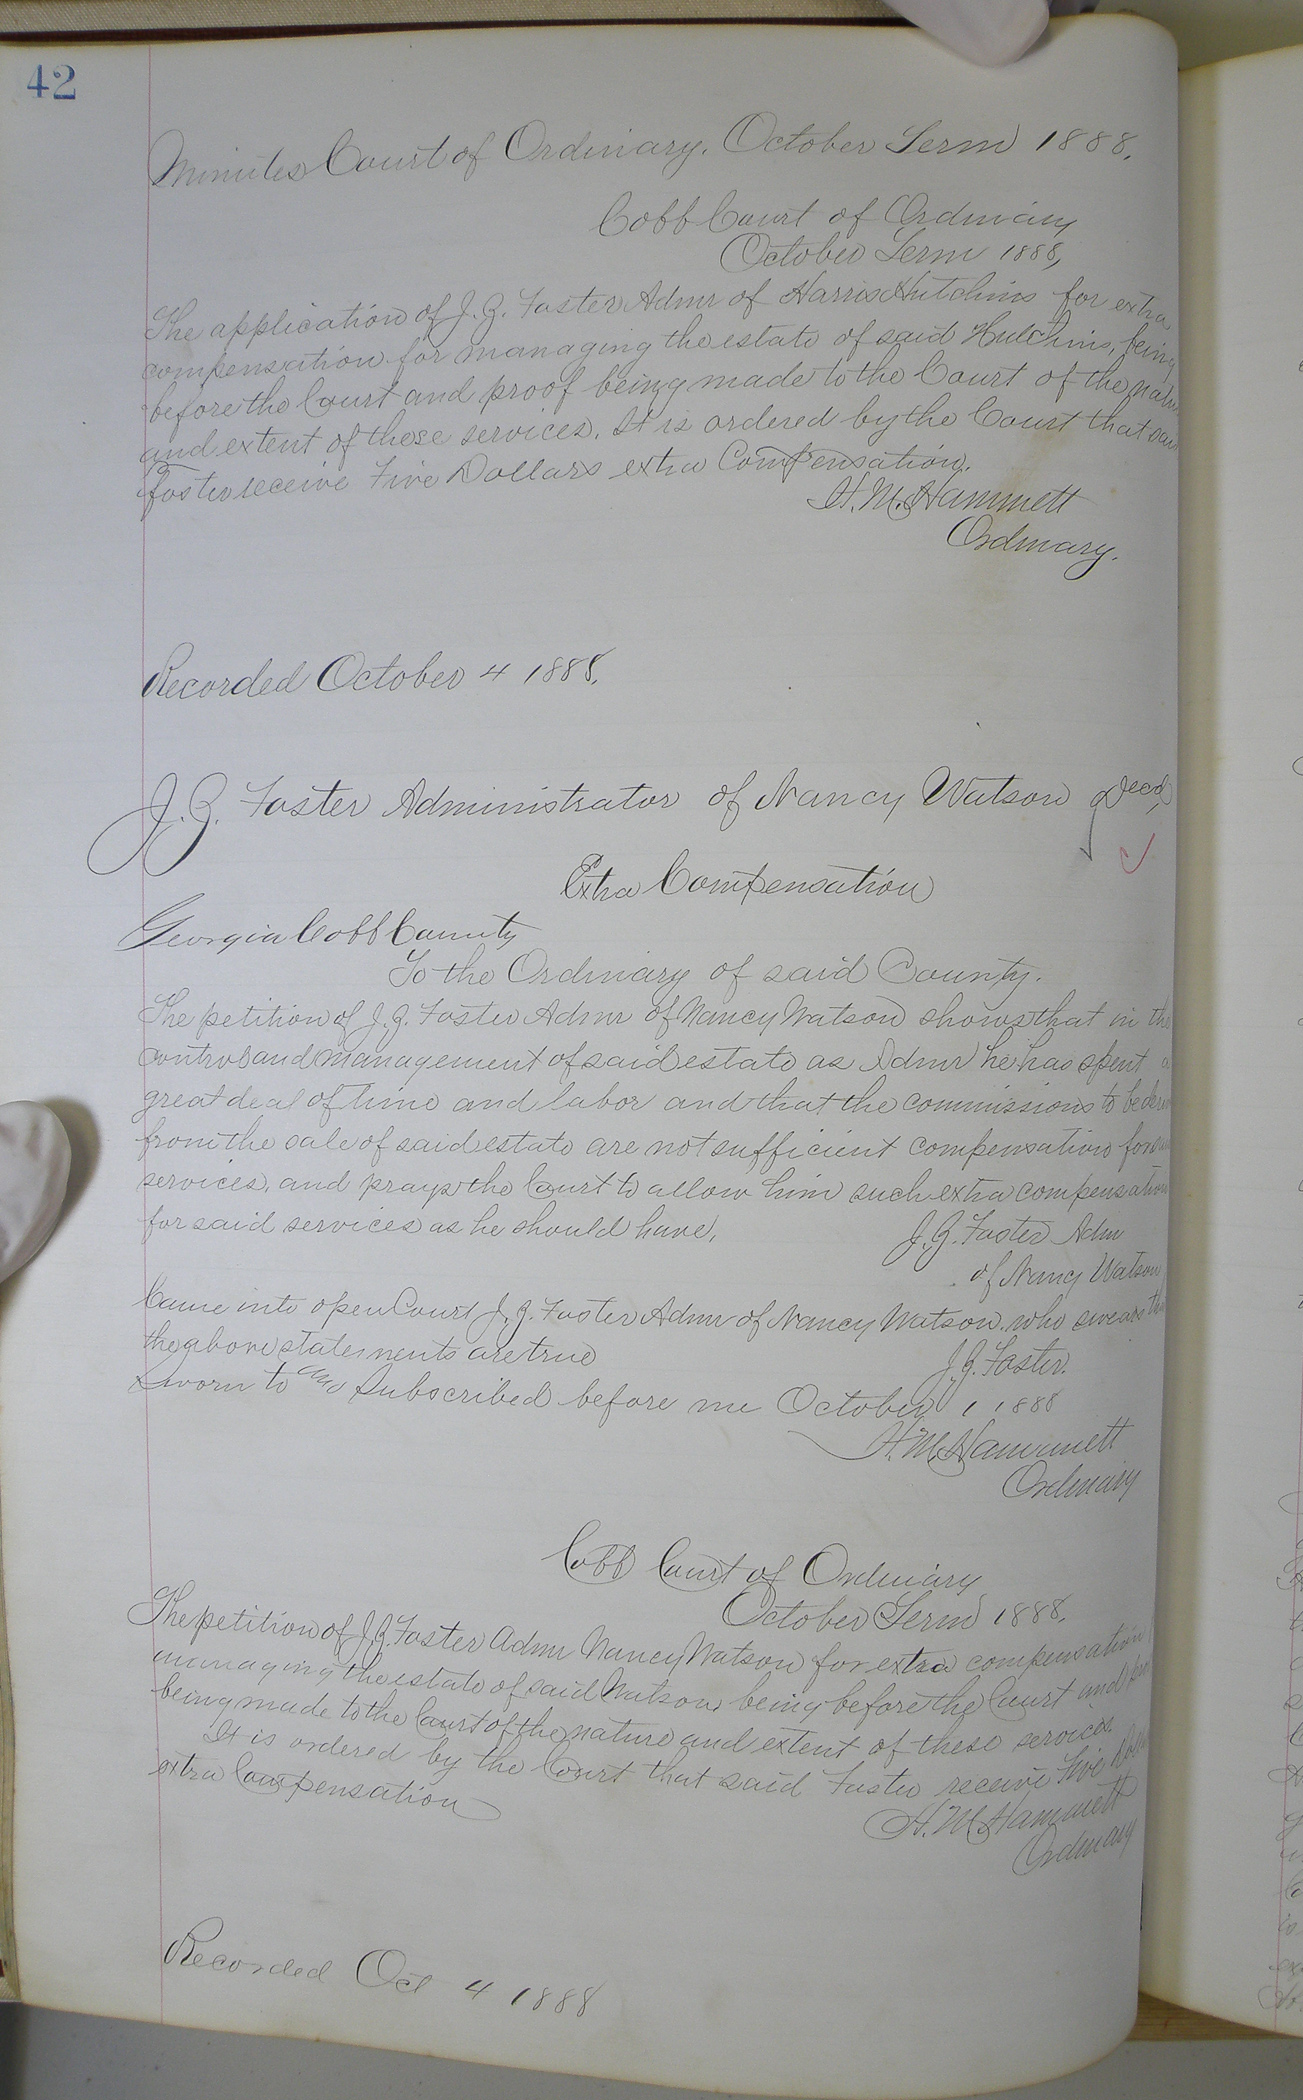 42
Minutes Court of Ordinary. October Term 1888.
Cobb Court of Ordinary
October Term 1888,
The application of J. G. Foster Admr of Harris Hutchins for extra
compensation for managing the estate of said Hutchins, being
before the Court and proof being made to the Court of the
and extent of these services. It is ordered by the Court that
Foster receive Five Dollars extra Compensation.
H. M. Hammett
Ordinary.
Recorded October 4 1888.
J. G. Foster Administrator of Nancy Watson Decd,
Extra Compensation
Georgia Cobb County
To the Ordinary of said County.
The petition of J. G. Foster Admr of Nancy Watson shows that in the
control and management of said estate as Admr he has spent a
great deal of time and labor and that the commissions to be
from the sale of said estate are not sufficient compensation for
services, and prays the Court to allow him such extra compensation
for said services as he should have,
J. G. Foster Admr
of Nancy Watson
Came into open Court J. G. Foster Admr of Nancy Watson. who swears
the above statements are true
J. G. Foster.
Sworn to and Subscribed before me October 1 1888
H. M. Hammett
Ordinary
Cobb Court of Ordinary
October Term 1888.
The petition of J. G. Foster Admr Nancy Watson for extra compensation
managing the estate of said Watson being before the Court and
being made to the Court of the nature and extent of these services.
It is ordered by the Court that said Foster receive Five
extra Compensation
H. M. Hammett
Ordinary
Recorded Oct 4 1888